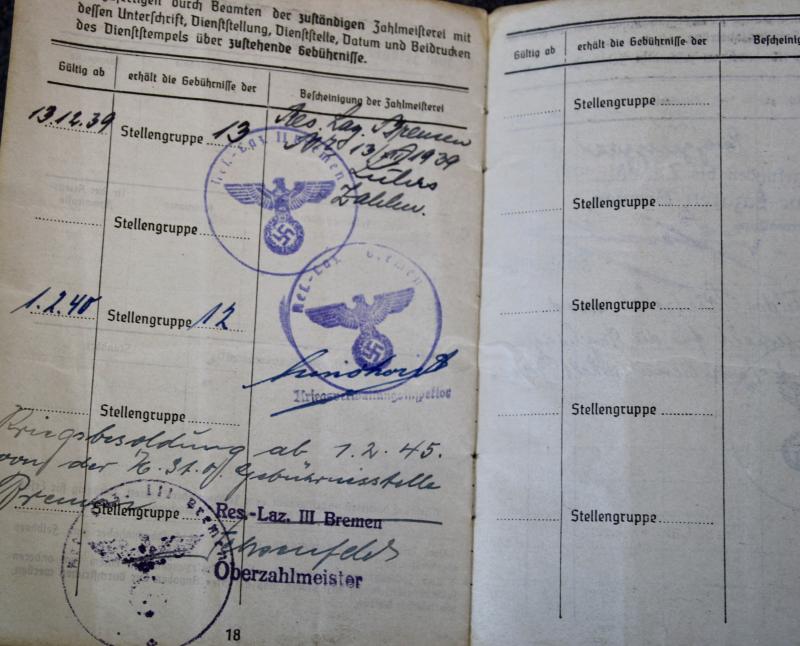 durch Beamten der zuständigen Zahlmeisterei mit
dessen Unterschrift, Dienststellung, Dienststelle, Datum und Beidrucken
des Dienststempels über zustehende Gebührnisse.
Gültig ab erhält die Gebührnisse der Bescheinigung der Zahlmeisterei
13.12.39 Stellengruppe 13 Res. Laz. Bremen
13/XII 1939
Zahlm.
Res.-Laz II Bremen
Stellengruppe
1.2.40 Stellengruppe 12
Res.-Laz Bremen
Kriegsverwaltungsinspektor
Stellengruppe
Kriegsbesoldung ab 1.2.45.
von der Gebührnisstelle
Bremen
Stellengruppe Res.-Laz. III Bremen
Oberzahlmeister
III Bremen
18
Gültig ab erhält die Gebührnisse der
Stellengruppe
Stellengruppe
Stellengruppe
Stellengruppe
Stellengruppe